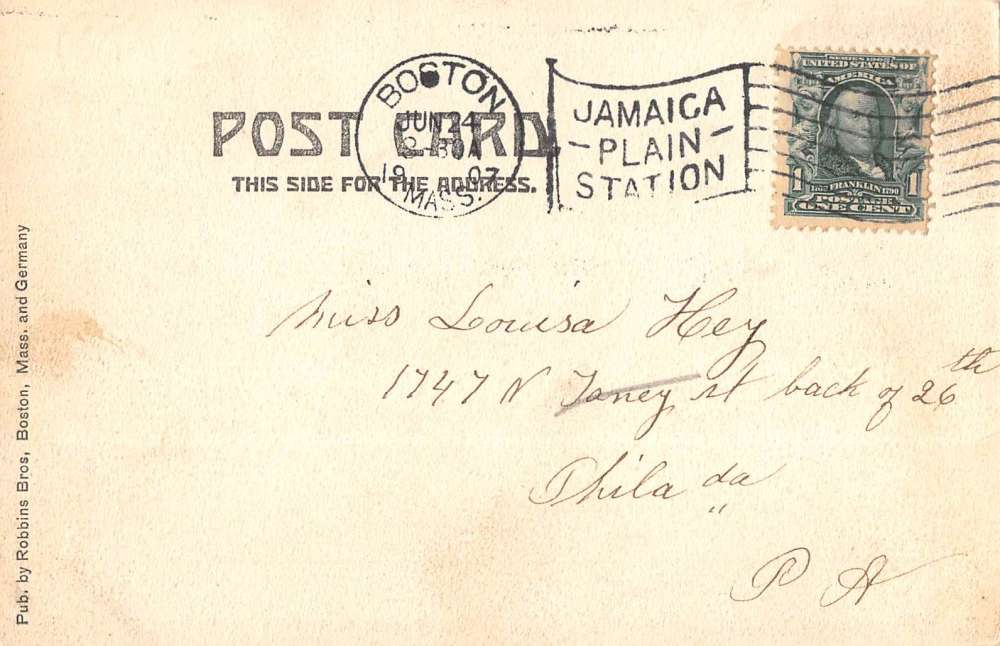 POST CARD
THIS SIDE FOR THE ADDRESS.
BOSTON
JUN 24
30A
1907
MASS.
JAMAICA
-PLAIN-
STATION
SERIES 1902
UNITED STATES OF
AMERICA
1 1706 FRANKLIN 1790 1
POSTAGE
ONE CENT
Miss Louisa Hey
1747 N Taney st back of 26th
Phila da
P A
Pub. by Robbins Bros, Boston, Mass. and Germany